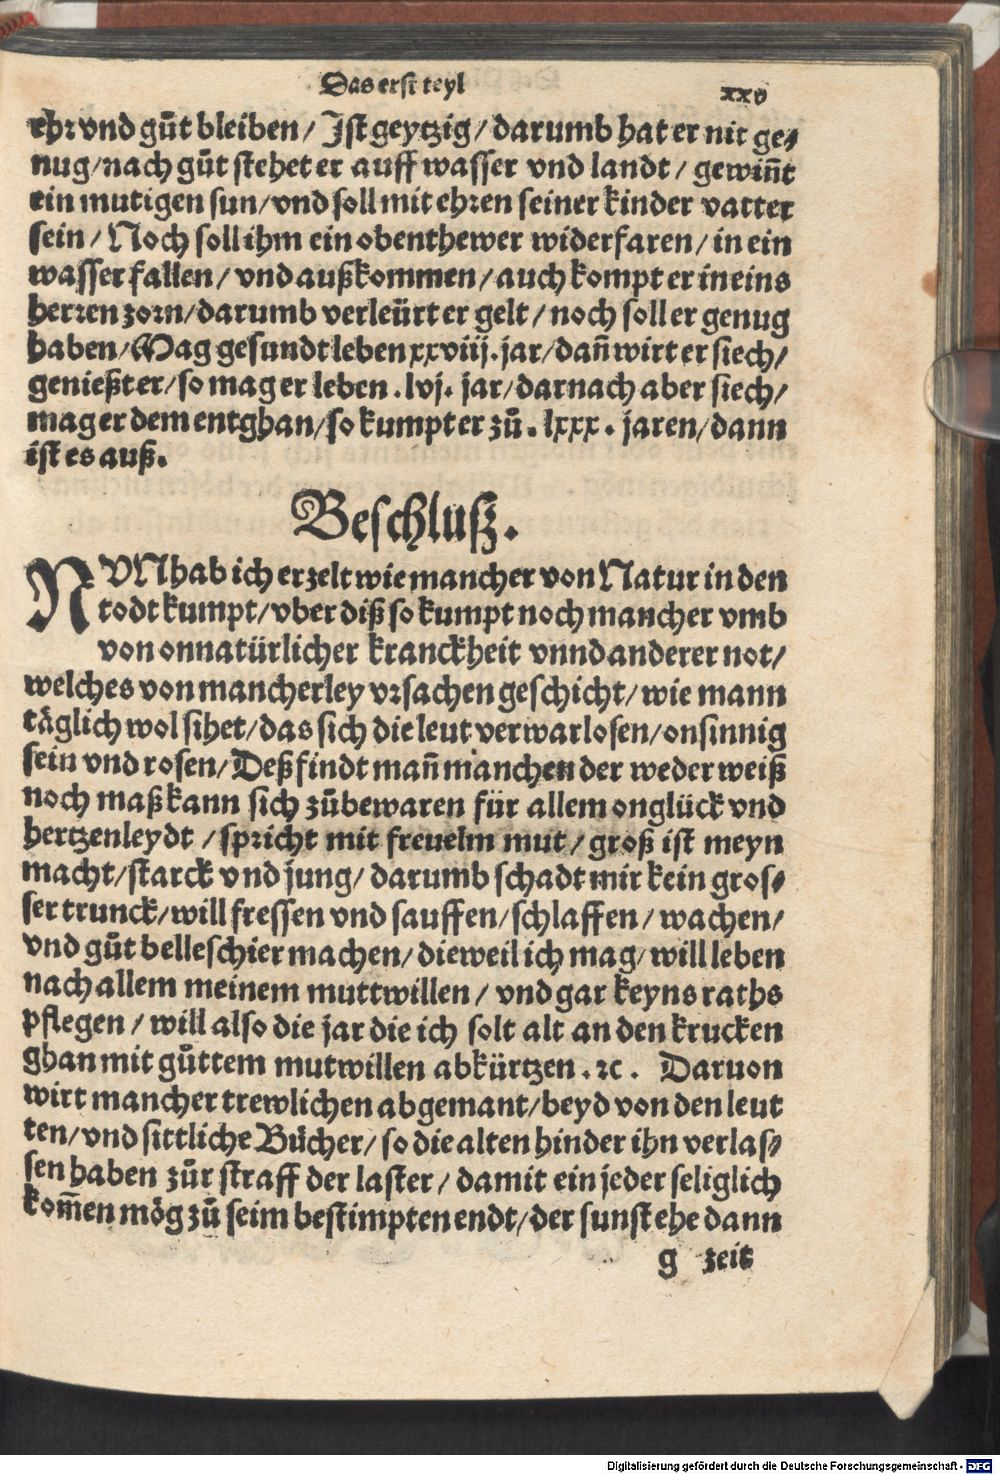 Das erst teyl
xxv
ehr vnd gůt bleiben/ Ist geytzig/ darumb hat er nit ge⸗
nug/ nach gůt stehet er auff wasser vnd landt/ gewiñt
ein mutigen sun/ vnd soll mit ehren seiner kinder vatter
sein/ Noch soll ihm ein obenthewer widerfaren/ in ein
wasser fallen/ vnd außkommen/ auch kompt er in eins
herren zorn/ darumb verleürt er gelt/ noch soll er genug
haben/ Mag gesundt leben xxviij. jar/ dañ wirt er siech/
genießt er/ so mag er leben .lvj. jar/ darnach aber siech/
mag er dem entghan/ so kumpt er zů. lxxx. jaren/ dann
ist es auß.
Beschlusz.
NVN hab ich erzelt wie mancher von Natur in den
todt kumpt/ vber diß so kumpt noch mancher vmb
von onnatürlicher kranckheit vnnd anderer not/
welches von mancherley vrsachen geschicht/ wie mann
täglich wol sihet/ das sich die leut verwarlosen/ onsinnig
sein vnd rosen/ Deß findt mañ manchen der weder weiß
noch maß kann sich zůbewaren für allem onglück vnd
hertzenleydt / spricht mit freuelm mut/ groß ist meyn
macht/ starck vnd jung/ darumb schadt mir kein gros⸗
ser trunck/ will fressen vnd sauffen/ schlaffen/ wachen/
vnd gůt belleschier machen/ dieweil ich mag/ will leben
nach allem meinem muttwillen/ vnd gar keyns raths
pflegen/ will also die jar die ich solt alt an den krucken
ghan mit gůttem mutwillen abkürtzen .ꝛc. Daruon
wirt mancher trewlichen abgemant/ beyd von den leut
ten/ vnd sittliche Bücher/ so die alten hinder ihn verlas⸗
sen haben zůr straff der laster/ damit ein jeder seliglich
kom̃en mög zů seim bestimpten endt/ der sunst ehe dann
g zeit
Digitalisierung gefördert durch die Deutsche Forschungsgemeinschaft - DFG